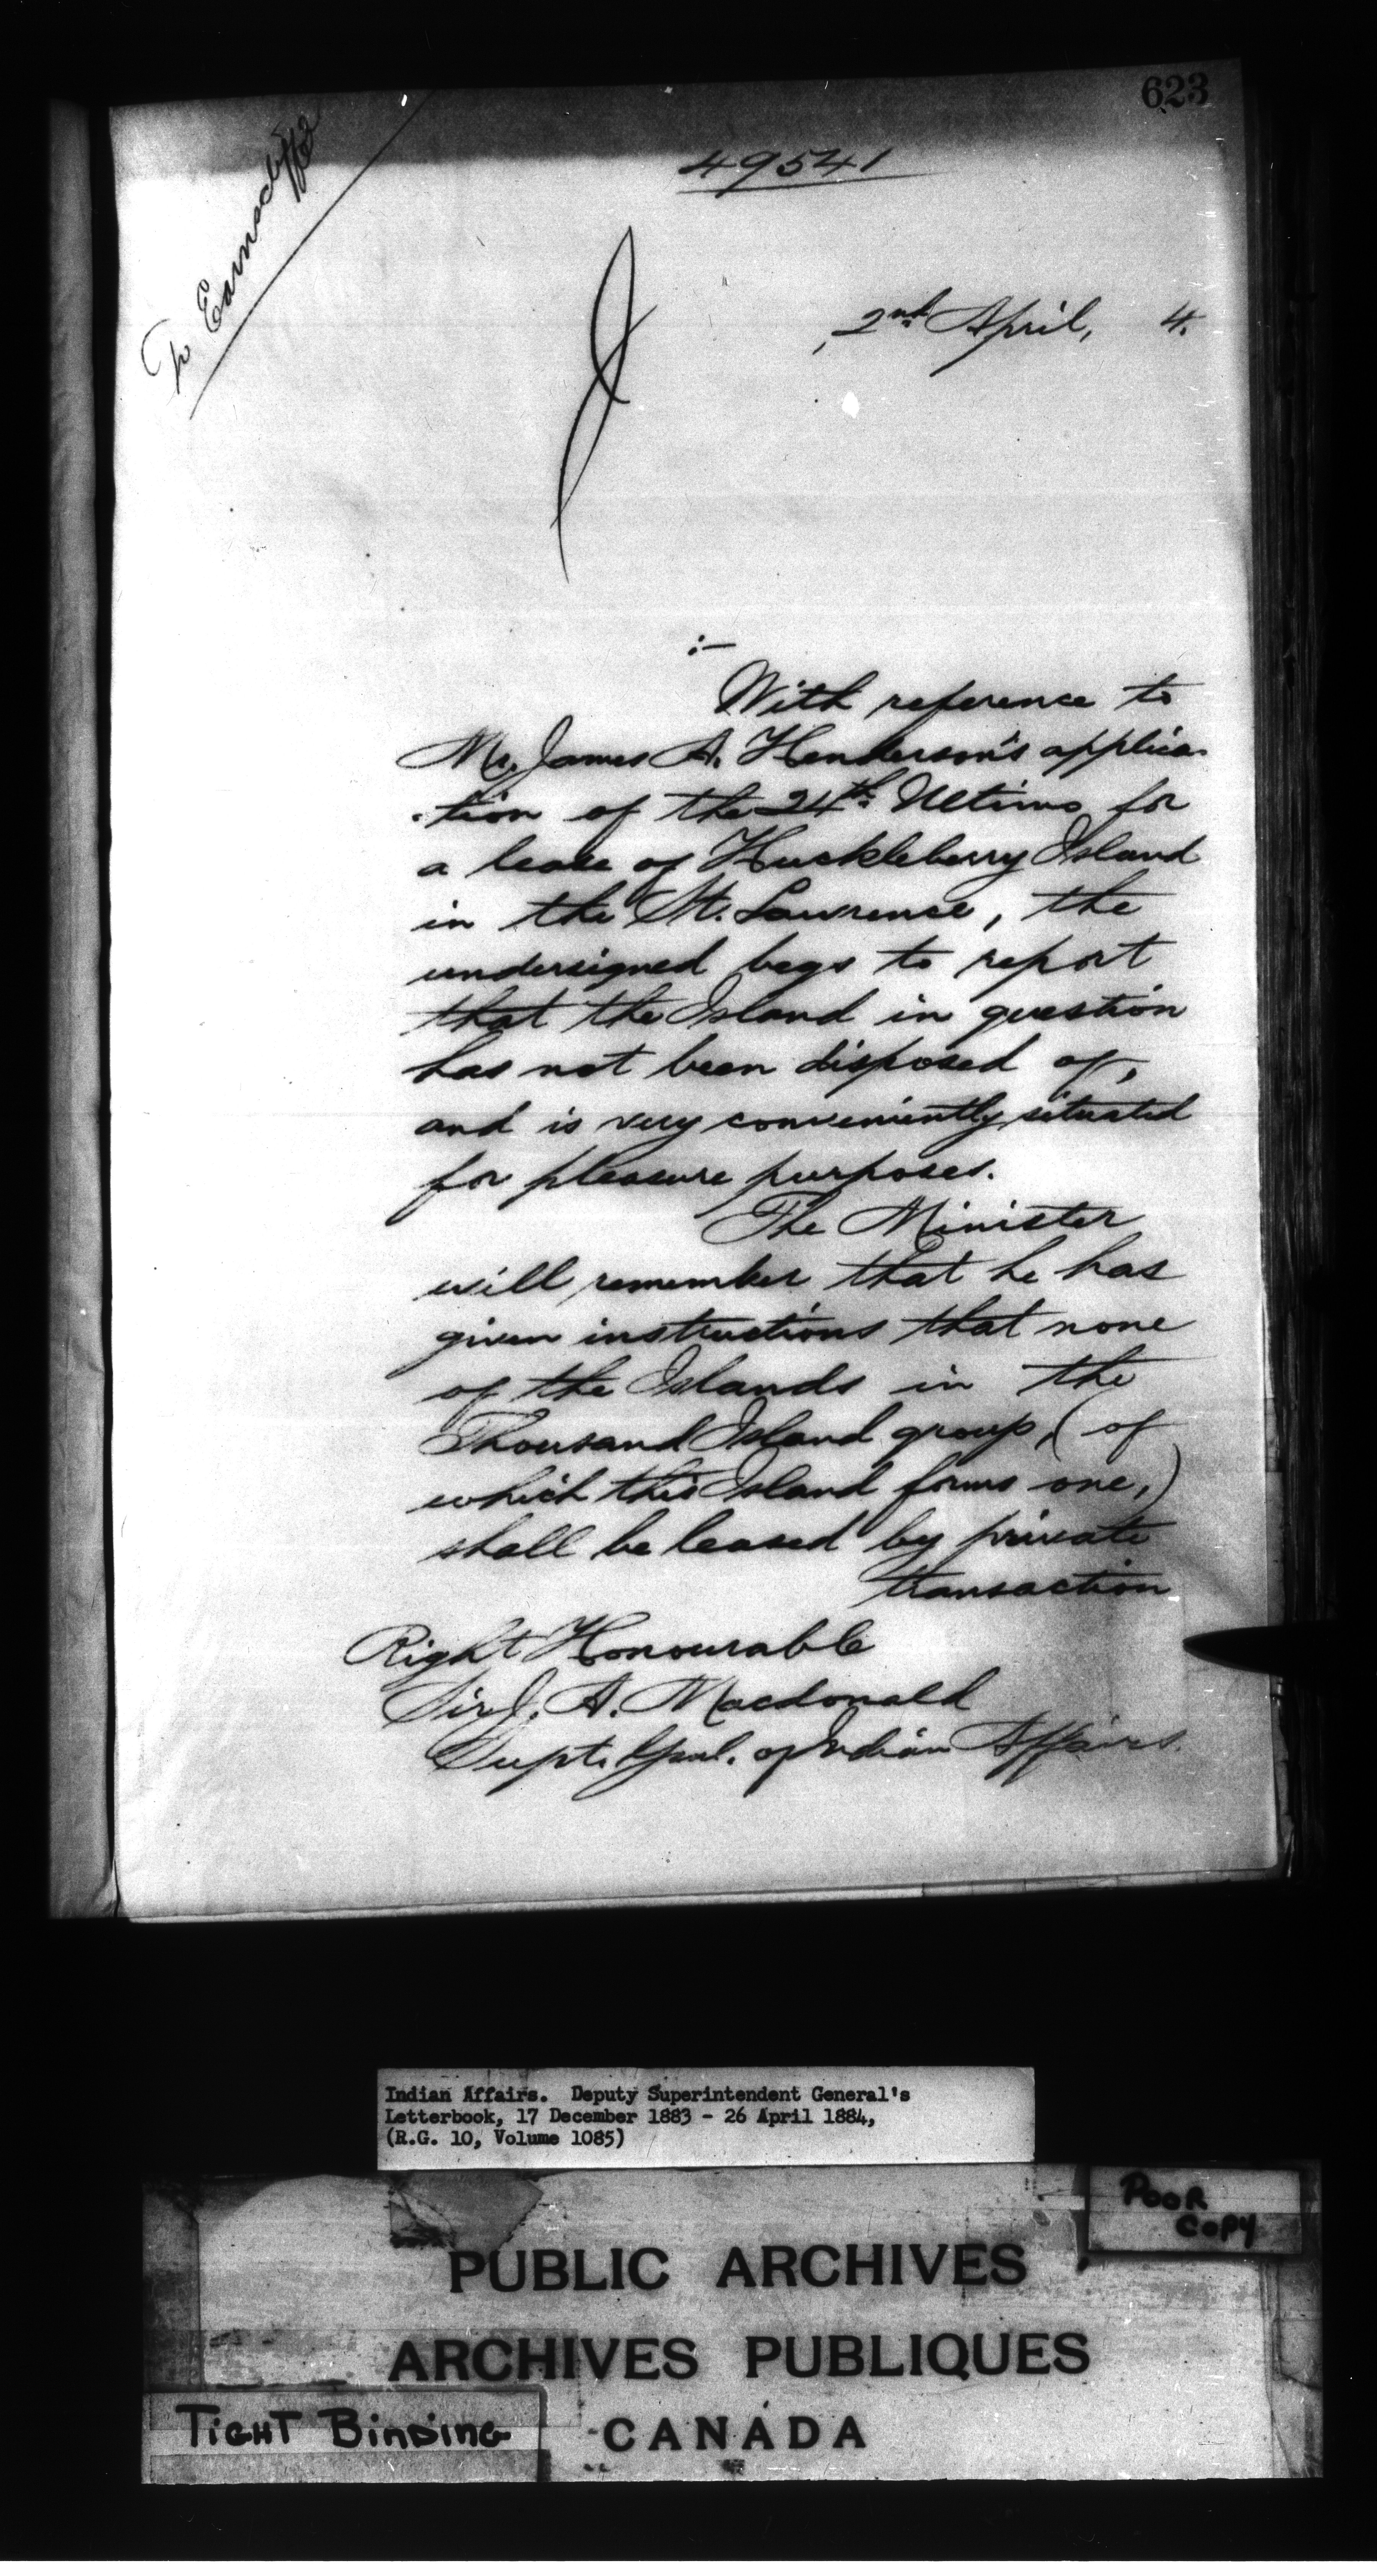 623
To Earnscliffe
49541
2nd April, 4.
:—
With reference to
Mr. James A. Henderson's applica-
-tion of the 24th Ultimo for
a lease of Huckleberry Island
in the St. Lawrence, the
undersigned begs to report
that the Island in question
has not been disposed of,
and is very conveniently situated
for pleasure purposes.
The Minister
will remember that he has
given instructions that none
of the Islands in the
Thousand Island group, (of
which this Island forms one,)
shall be leased by private
transaction
Right Honourable
Sir J. A. Macdonald
Supt. Genl. of Indian Affairs.
Indian Affairs. Deputy Superintendent General's
Letterbook, 17 December 1883 - 26 April 1884,
(R.G. 10, Volume 1085)
POOR
COPY
PUBLIC ARCHIVES
ARCHIVES PUBLIQUES
CANADA
TIGHT BINDING